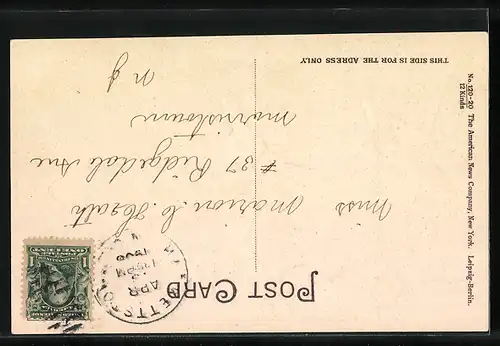 POST CARD
THIS SIDE IS FOR THE ADRESS ONLY
No. 120-20 The American News Company, New York. Leipzig-Berlin.
12 Kinds
APR
Miss Marion C. Heath
# 37 Ridgedale Ave
Morristown
N J